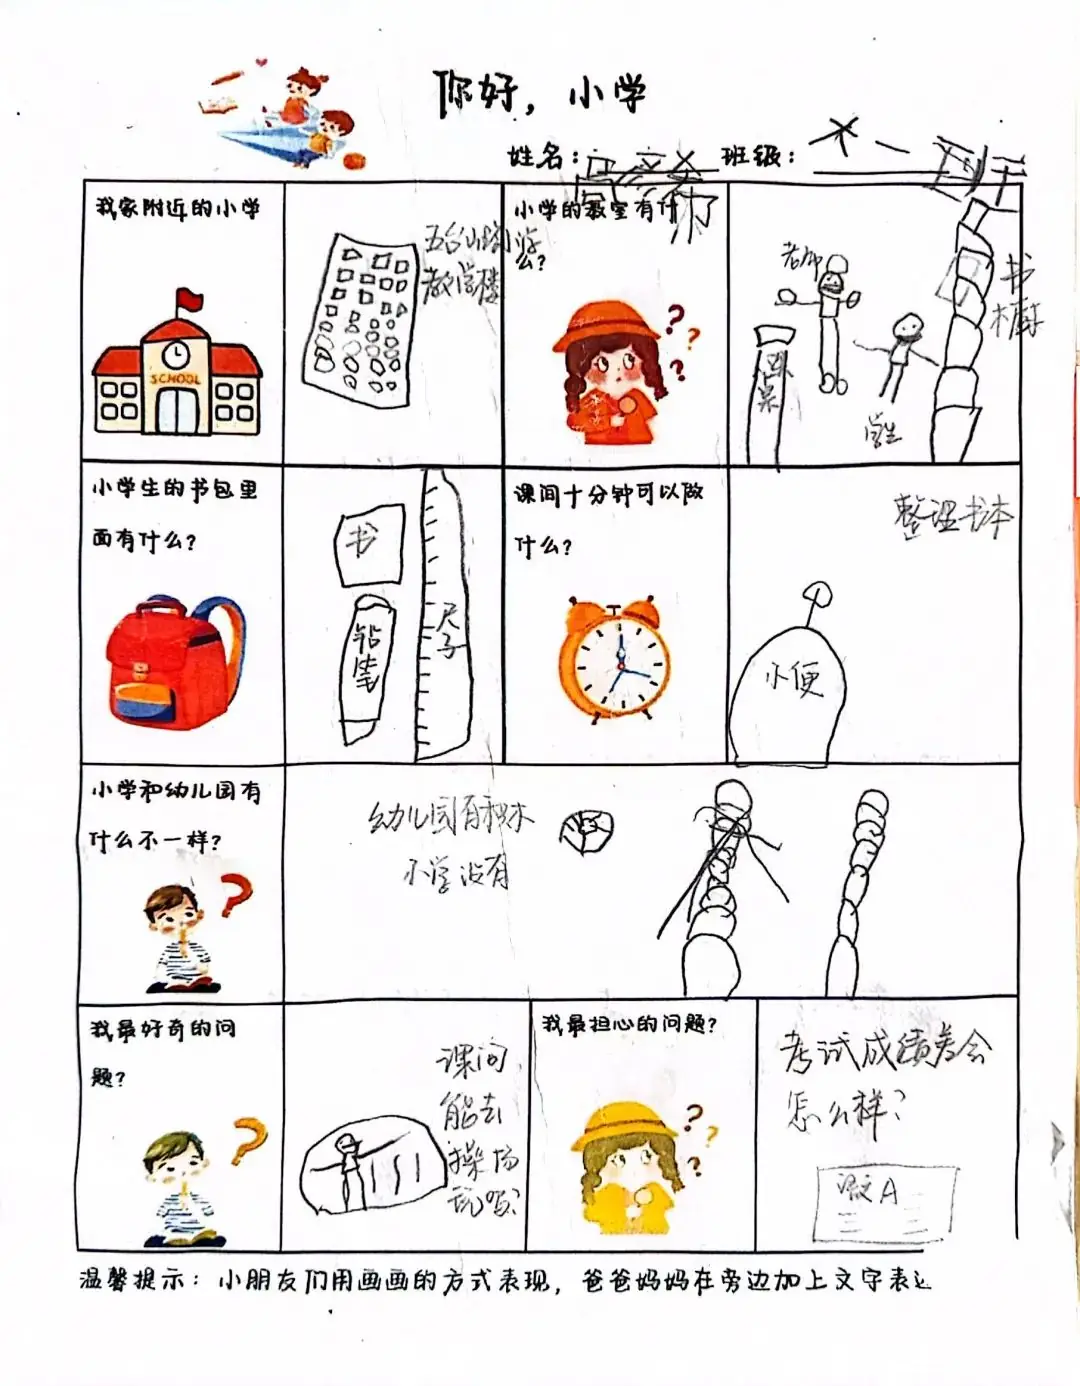 你好，小学
姓名：
班级：
我家附近的小学
SCHOOL
教学楼
小学的教室有什
么？
老师
学生
书
橱
小学生的书包里
面有什么？
书
铅笔
尺子
课间十分钟可以做
什么？
整理书本
小便
小学和幼儿园有
什么不一样？
幼儿园有积木
小学没有
我最好奇的问
题？
课间
能去
操场
玩吗？
我最担心的问题？
考试成绩差会
怎么样？
语文A
温馨提示：小朋友们用画画的方式表现，爸爸妈妈在旁边加上文字表